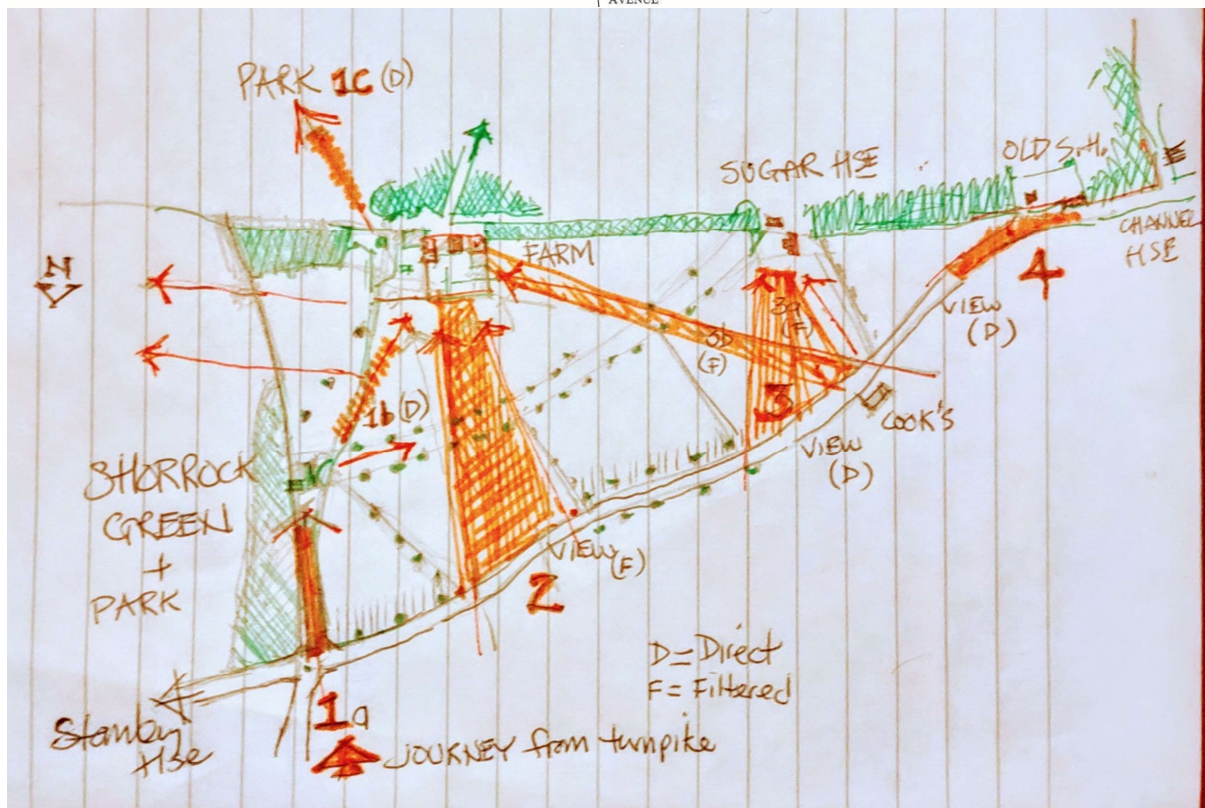 AVENUE
PARK 1C (D)
SUGAR HSE
OLD S.H.
CHANNEL
HSE
N
FARM
VIEW
(D)
4
3a
(F)
3b
(F)
3
1b (D)
COOK'S
VIEW
(D)
SHORROCK
GREEN
+
PARK
VIEW (F)
2
D = Direct
F = Filtered
1a
Stanley
Hse
JOURNEY from turnpike